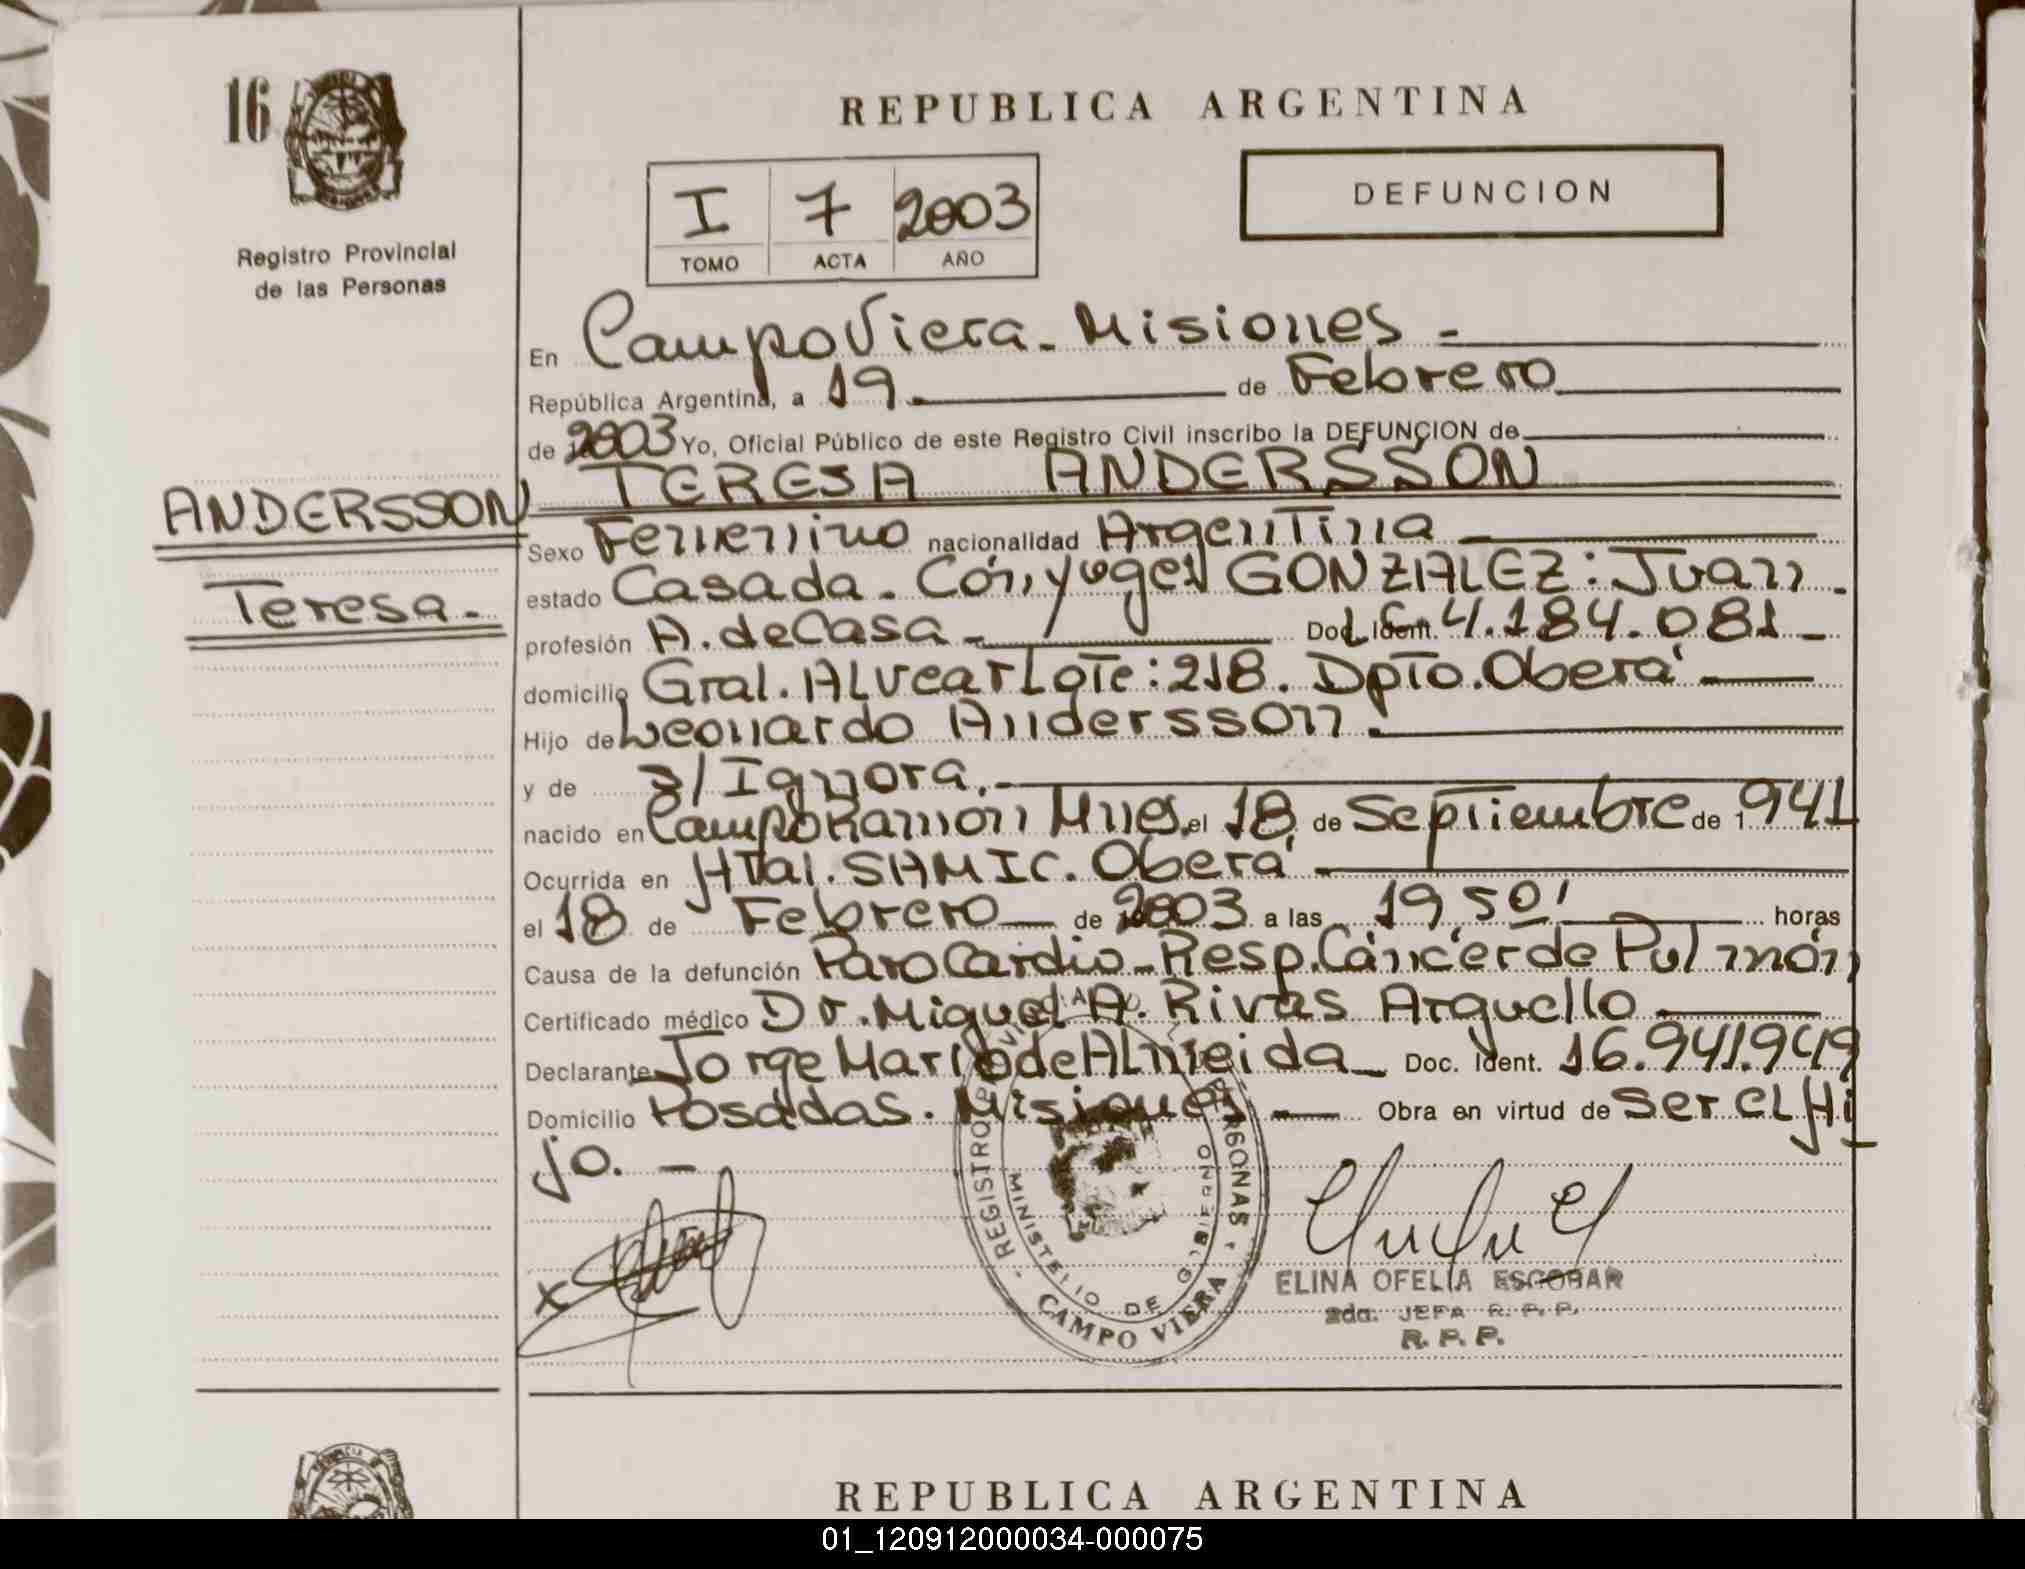 16
Registro Provincial
de las Personas
REPUBLICA ARGENTINA
I 7 2003
TOMO ACTA AÑO
DEFUNCION
En Campo Viera - Misiones -
República Argentina, a 19 de Febrero
de 2003 Yo, Oficial Público de este Registro Civil inscribo la DEFUNCION de
TERESA ANDERSSON
ANDERSSON
Teresa.-
Sexo Femenino nacionalidad Argentina
estado Casada. Cónyuge GONZALEZ: Juan.
profesión A. de Casa - Doc. Ident. L.C. 4.184.081 -
domicilio Gral. Alvear Lote: 218. Dpto. Oberá
Hijo de Leonardo Andersson.
y de s/ Ignora.
nacido en Campo Ramón Mnes. el 18 de Septiembre de 1.941
Ocurrida en Htal. SAMIC. Oberá
el 18 de Febrero de 2003 a las 19 50' horas
Causa de la defunción Paro Cardio-Resp. Cáncer de Pulmón
Certificado médico Dr. Miguel A. Rivas Arguello
Declarante Jorge Mario de Almeida Doc. Ident. 16.941.949
Domicilio Posadas. Misiones Obra en virtud de ser el Hi
jo. -
X
REGISTRO PERSONAS
MINISTERIO DE GOBIERNO
CAMPO VIERA
ELINA OFELIA ESCOBAR
2da. JEFA R. P. P.
R. P. P.
REPUBLICA ARGENTINA
01_120912000034-000075